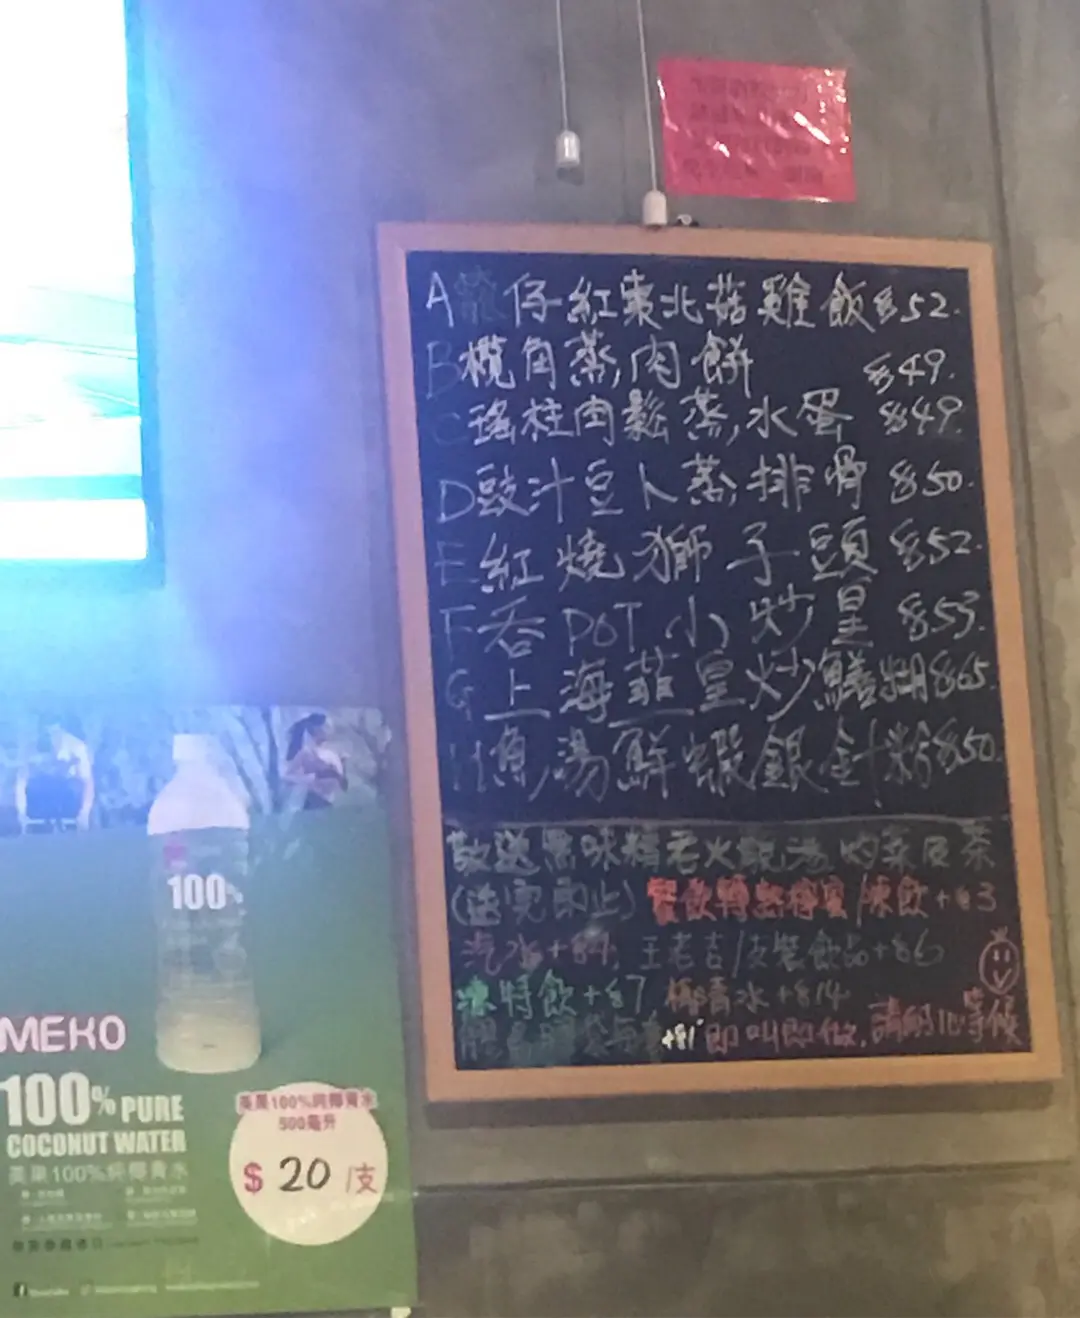 A 籠仔紅棗北菇雞飯 $52.
B 欖角蒸肉餅 $49.
C 瑤柱肉鬆蒸水蛋 $49.
D 豉汁豆卜蒸排骨 $50.
E 紅燒獅子頭 $52.
F 吞POT小炒皇 $53.
G 上海韮皇炒鱔糊 $65.
H 魚湯鮮蝦銀針粉 $50.
敬送 老火靚湯 菜及茶
(送完即止) 餐飲轉熱檸蜜/凍飲+$3
汽水+$4, 王老吉/支裝飲品+$6
凍特飲+$7 椰青水+$14
+$1 即叫即做,請耐心等候
100%
MEKO
100% PURE
COCONUT WATER
美果100%純椰青水
美果100%純椰青水
500毫升
$ 20 /支